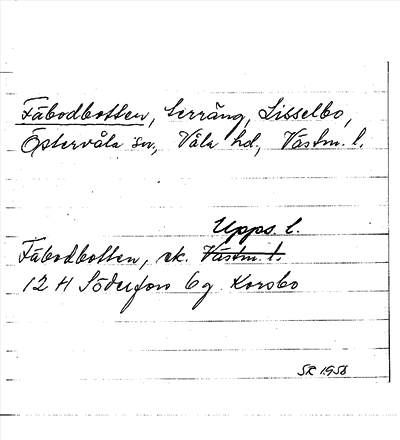 Fäbodbotten, terräng, Lisselbo,
Östervåla sn, Våla hd, Västm. l.
Upps. l.
Fäbodbotten, ek. Västm. l.
12 H Söderfors 6 g Korsbo
SR 1956